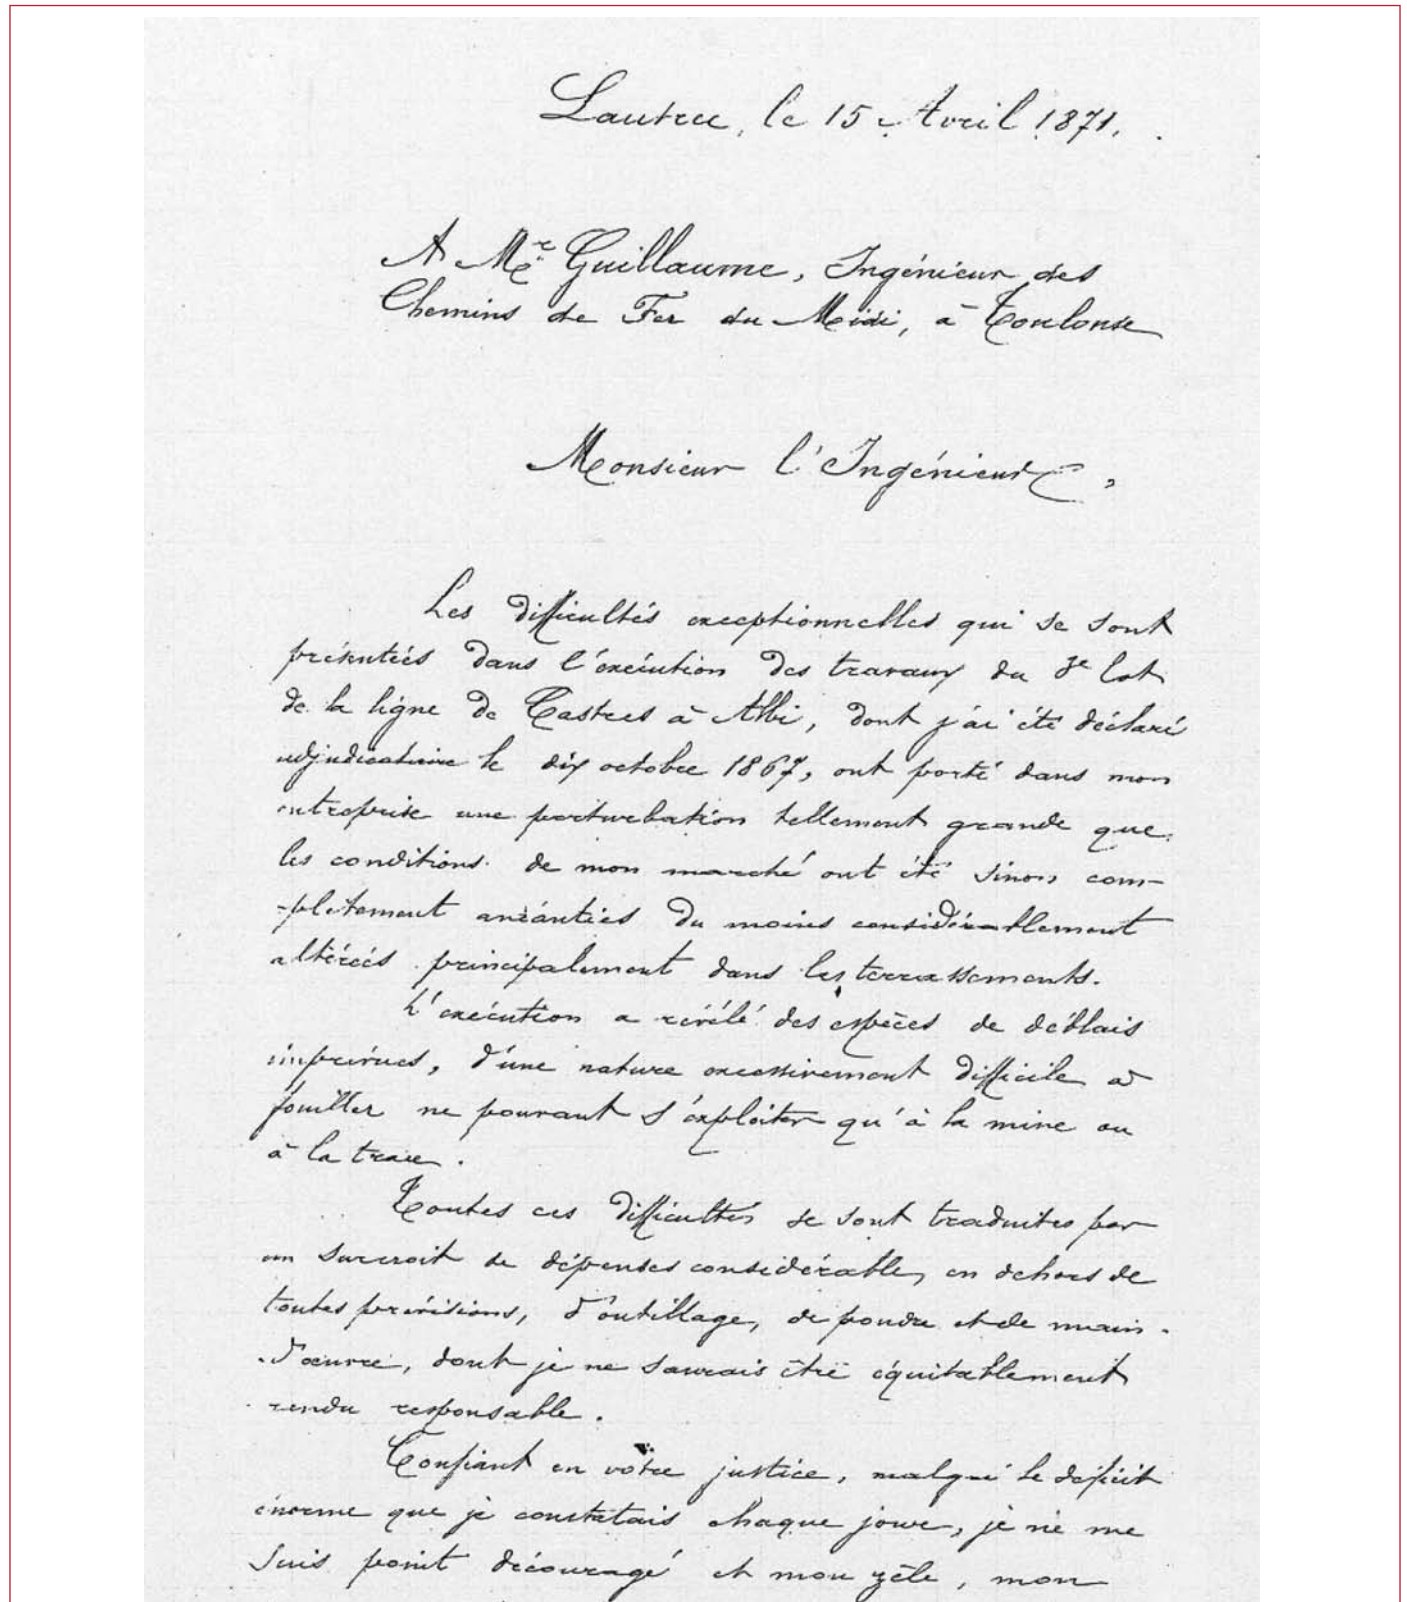 Lautrec, le 15 Avril 1871.
A Mr Guillaume, Ingénieur des
Chemins de Fer du Midi, à Toulouse
Monsieur l'Ingénieur,
Les difficultés exceptionnelles qui se sont
présentées dans l'exécution des travaux du 3e lot
de la ligne de Castres à Albi, dont j'ai été déclaré
adjudicataire le dix octobre 1867, ont porté dans mon
entreprise une perturbation tellement grande que
les conditions de mon marché ont été sinon com-
-plètement anéanties du moins considérablement
altérées principalement dans les terrassements.
L'exécution a révélé des espèces de déblais
imprévues, d'une nature excessivement difficile à
fouiller ne pouvant s'exploiter qu'à la mine ou
à la trace.
Toutes ces difficultés se sont traduites par
un surcroit de dépenses considérable, en dehors de
toutes prévisions, d'outillage, de poudre et de main-
-d'œuvre, dont je ne saurais être équitablement
rendu responsable.
Confiant en votre justice, malgré le déficit
énorme que je constatais chaque jour, je ne me
suis point découragé et mon zèle, mon